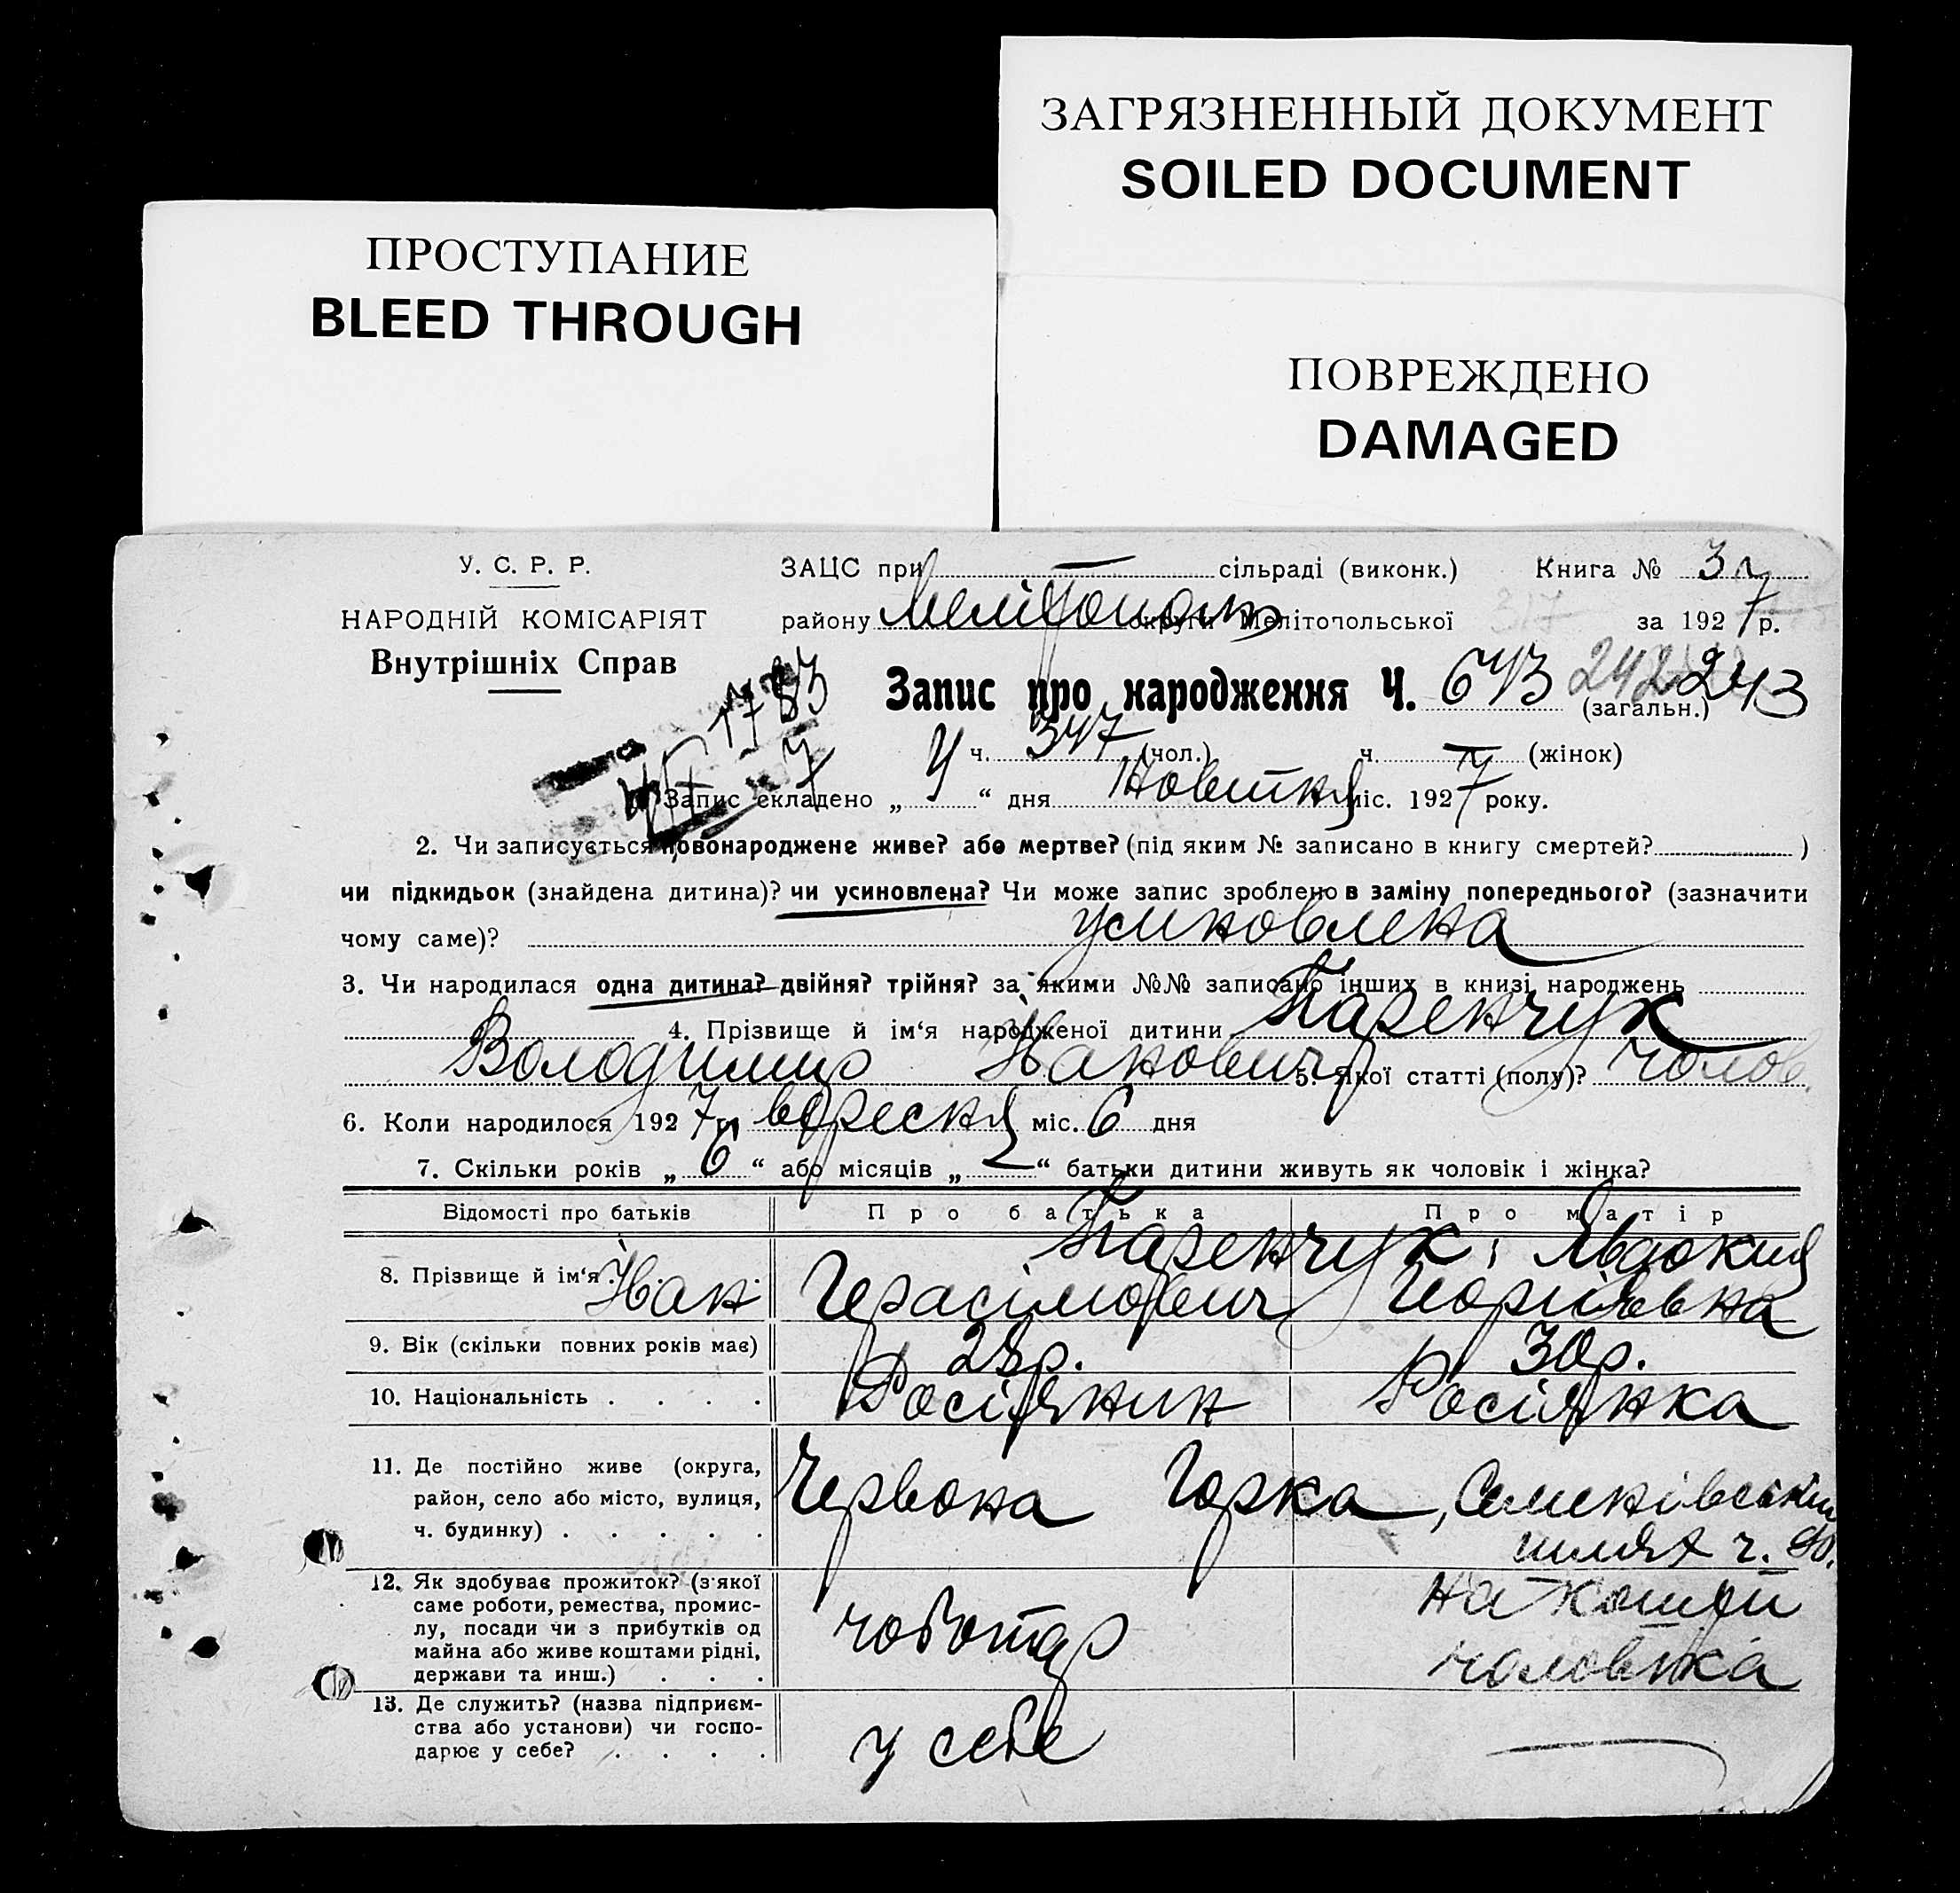 ЗАГРЯЗНЕННЫЙ ДОКУМЕНТ
SOILED DOCUMENT
ПРОСТУПАНИЕ
BLEED THROUGH
ПОВРЕЖДЕНО
DAMAGED
У. С. Р. Р.
НАРОДНІЙ КОМІСАРІЯТ
Внутрішніх Справ
ЗАЦС при — сільраді (виконк.) Книга № 3
району Мелітополь округи Мелітопольської 317 за 1927 р.
Запис про народження Ч. 643 242 243
(загальн.)
1783
ч. 347 (чол.) ч. — (жінок)
Запис складено „ 4 “ дня Новитня міс. 1927 року.
2. Чи записується новонароджене живе? або мертве? (під яким № записано в книгу смертей? )
чи підкидьок (знайдена дитина)? чи усиновлена? Чи може запис зроблено в заміну попереднього? (зазначити
чому саме)? усиновлена
3. Чи народилася одна дитина? двійня? трійня? за якими №№ записано інших в книзі народжень
4. Прізвище й ім‘я народженої дитини Паренчук
Володимир Іванович 5. Якої статті (полу)? чолов.
6. Коли народилося 1927 р. вересня міс. 6 дня
7. Скільки років „ 6 “ або місяців „ “ батьки дитини живуть як чоловік і жінка?
Відомості про батьків Про батька Про матір
8. Прізвище й ім‘я Паренчук; Явдокия
Іван Герасімович
9. Вік (скільки повних років має) 28 р. 30 р.
10. Національність . . . . Росіянин Росіянка
11. Де постійно живе (округа,
район, село або місто, вулиця,
ч. будинку) . . . . .
Червона Горка, Семенівський
шлях ч.
12. Як здобуває прожиток? (з'якої
саме роботи, ремества, промис-
лу, посади чи з прибутків од
майна або живе коштами рідні,
держави та инш.) . . .
чоботар
на кошти
чоловіка
13. Де служить? (назва підприєм-
ства або установи) чи госпо-
дарює у себе? . . . .
у себе